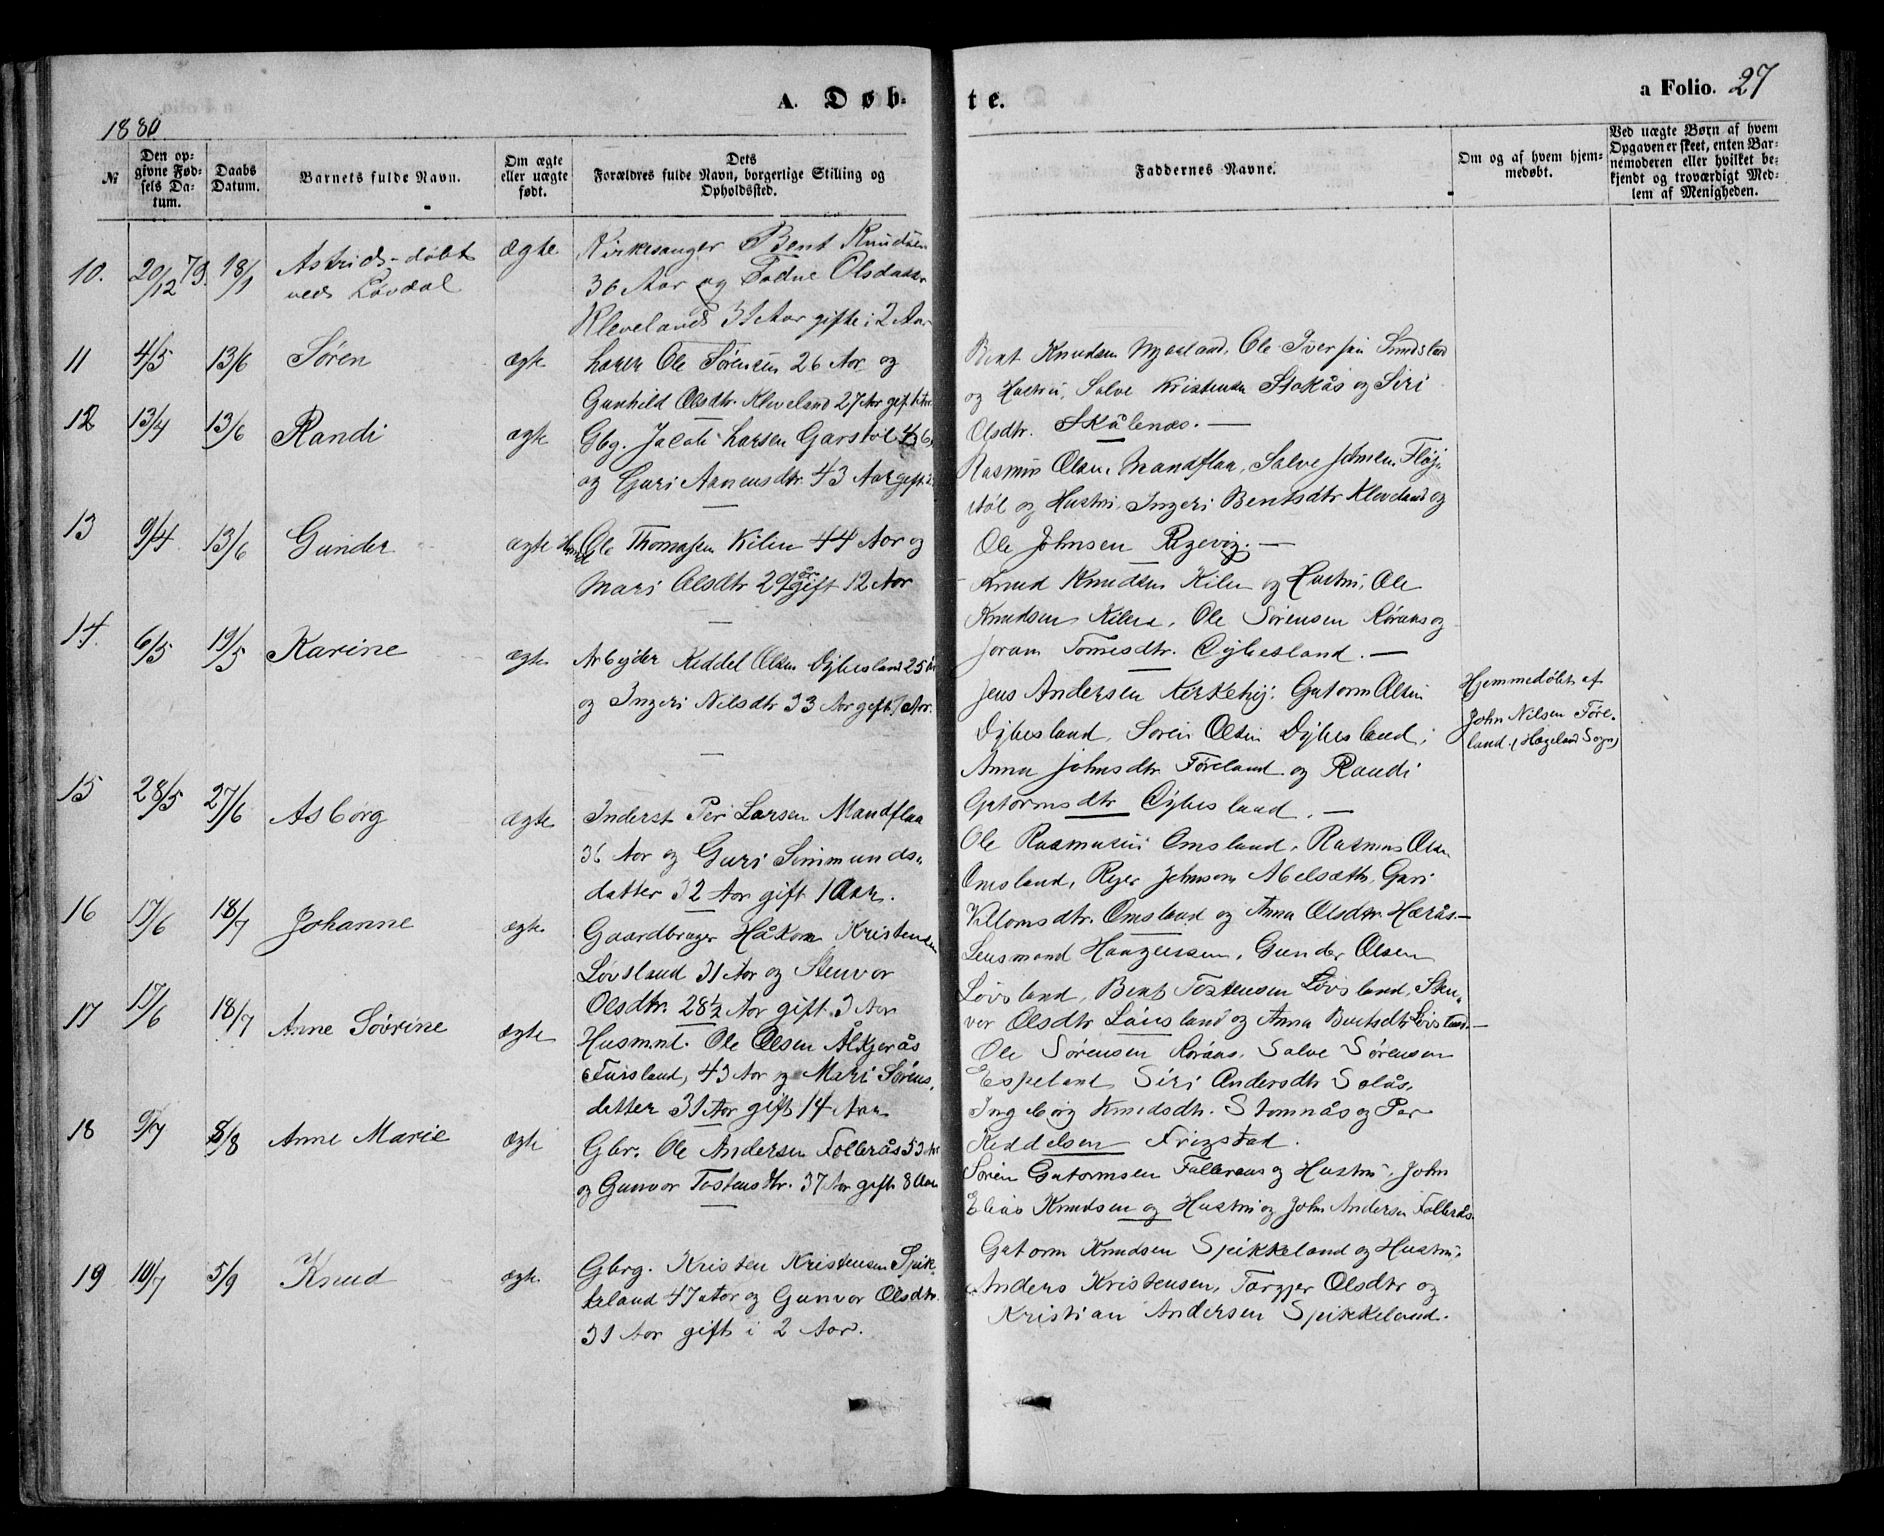 A. Døb-
te.
a Folio. 27
1880
№
Den op-
givne Fød-
sels Da-
tum.
Daabs
Datum.
Barnets fulde Navn.
Om ægte
eller uægte
født.
Dets
Forældres fulde Navn, borgerlige Stilling og
Opholdssted.
Faddernes Navne.
Om og af hvem hjem-
medøbt.
Ved uægte Børn af hvem
Opgaven er skeet, enten Bar-
nemoderen eller hvilket be-
kjendt og troværdigt Med-
lem af Menigheden.
10. 20/12 79. 18/1 Astrid - døbt
ved Løvdal
ægte
Kirkesanger Bent Knudsen
36 Aar og Todne Olsdatter
Kleveland 31 Aar gifte i 2 Aar
11 4/5 13/6 Søren ægte
Ole Sørensen 26 Aar og
Gunhild Olsdtr. Kleveland 27 Aar gift
Bent Knudsen Ole Iversen
og Hustru, Salve Kristensen Stokås og Siri
Olsdtr. Skålenæs. —
12 13/4 13/6 Randi ægte
Gbg. Jacob Larsen Garstøl 46
og Guri Aanensdtr. 43 Aar gift
Rasmus Olsen Mandflaa, Salve Johnsen Fløj-
støl og Hustru, Ingeri Bentsdtr Kleveland og
Ole Johnsen —
13 9/4 13/6 Gunder ægte
Ole Thomassen Kilen 44 Aar og
Mari Olsdtr 29 år gift 12 Aar
Knud Knudsen Kilen og Hustru, Ole
Knudsen Kilen, Ole Sørensen Røraas og
Joran Tomesdtr. Dybesland. —
14. 6/5 19/5 Karine ægte
Arbeyder Keddel Olsen Dybesland 25 år
og Ingeri Nilsdtr 33 Aar gift 1 Aar.
Jens Andersen Kirkehej. Gutorm Olsen
Dybesland, Søren Olsen Dybesland,
Anna Johnsdtr Føreland og Randi
Gutormsdtr Dybesland. —
Hjemmedøbt af
John Nilsen Føre-
land. (Hægeland Sogn)
15 28/5 27/6 Asborg ægte
Inderst Per Larsen Mandflaa
36 Aar og Guri Simmunds-
datter 32 Aar gift 1 Aar.
Ole Rasmusen Omsland, Rasmus Olsen
Omsland, Rejer Johnsen Abelsæth, Guri
Villomsdtr. Omsland og Anna Olsdtr. Harås —
16 17/6 18/7 Johanne ægte
Gaardbruger Håkon Kristensen
Løvsland 31 Aar og Stenvor
Olsdtr. 28½ Aar gift 3 Aar
Lensmand Haagensen, Gunder Olsen
Løvsland, Bent Tostensen Løvsland, Sten-
vor Olsdtr Løvsland og Anna Bentsdtr Løvsland. —
17 17/6 18/7 Anne Søvrine ægte
Husmnd. Ole Olsen Ålkjerås
Fursland, 43 Aar og Mari Sørens-
datter 31 Aar gift 14 Aar
Ole Sørensen Røraas, Salve Sørensen
Espeland, Siri Andersdtr Solås,
Ingeborg Knudsdtr. Stomnås og Per
Keddelsen Frigstad.
18 9/7 8/8 Anne Marie ægte
Gbr. Ole Andersen Follerås 53 Aar
og Gunvor Tostensdtr. 37 Aar gift 8 Aar
Søren Gutormsen Folleraas og Hustru, John
Elias Knudsen og Hustru og John Andersen Follerås.
19 10/7 5/9 Knud ægte
Gbrg. Kristen Kristensen Spik-
keland 47 Aar og Gunvor Olsdtr.
31 Aar gift i 2 Aar.
Gutorm Knudsen Spikkeland og Hustru,
Anders Kristensen, Targjer Olsdtr og
Kristian Andersen Spikkeland.